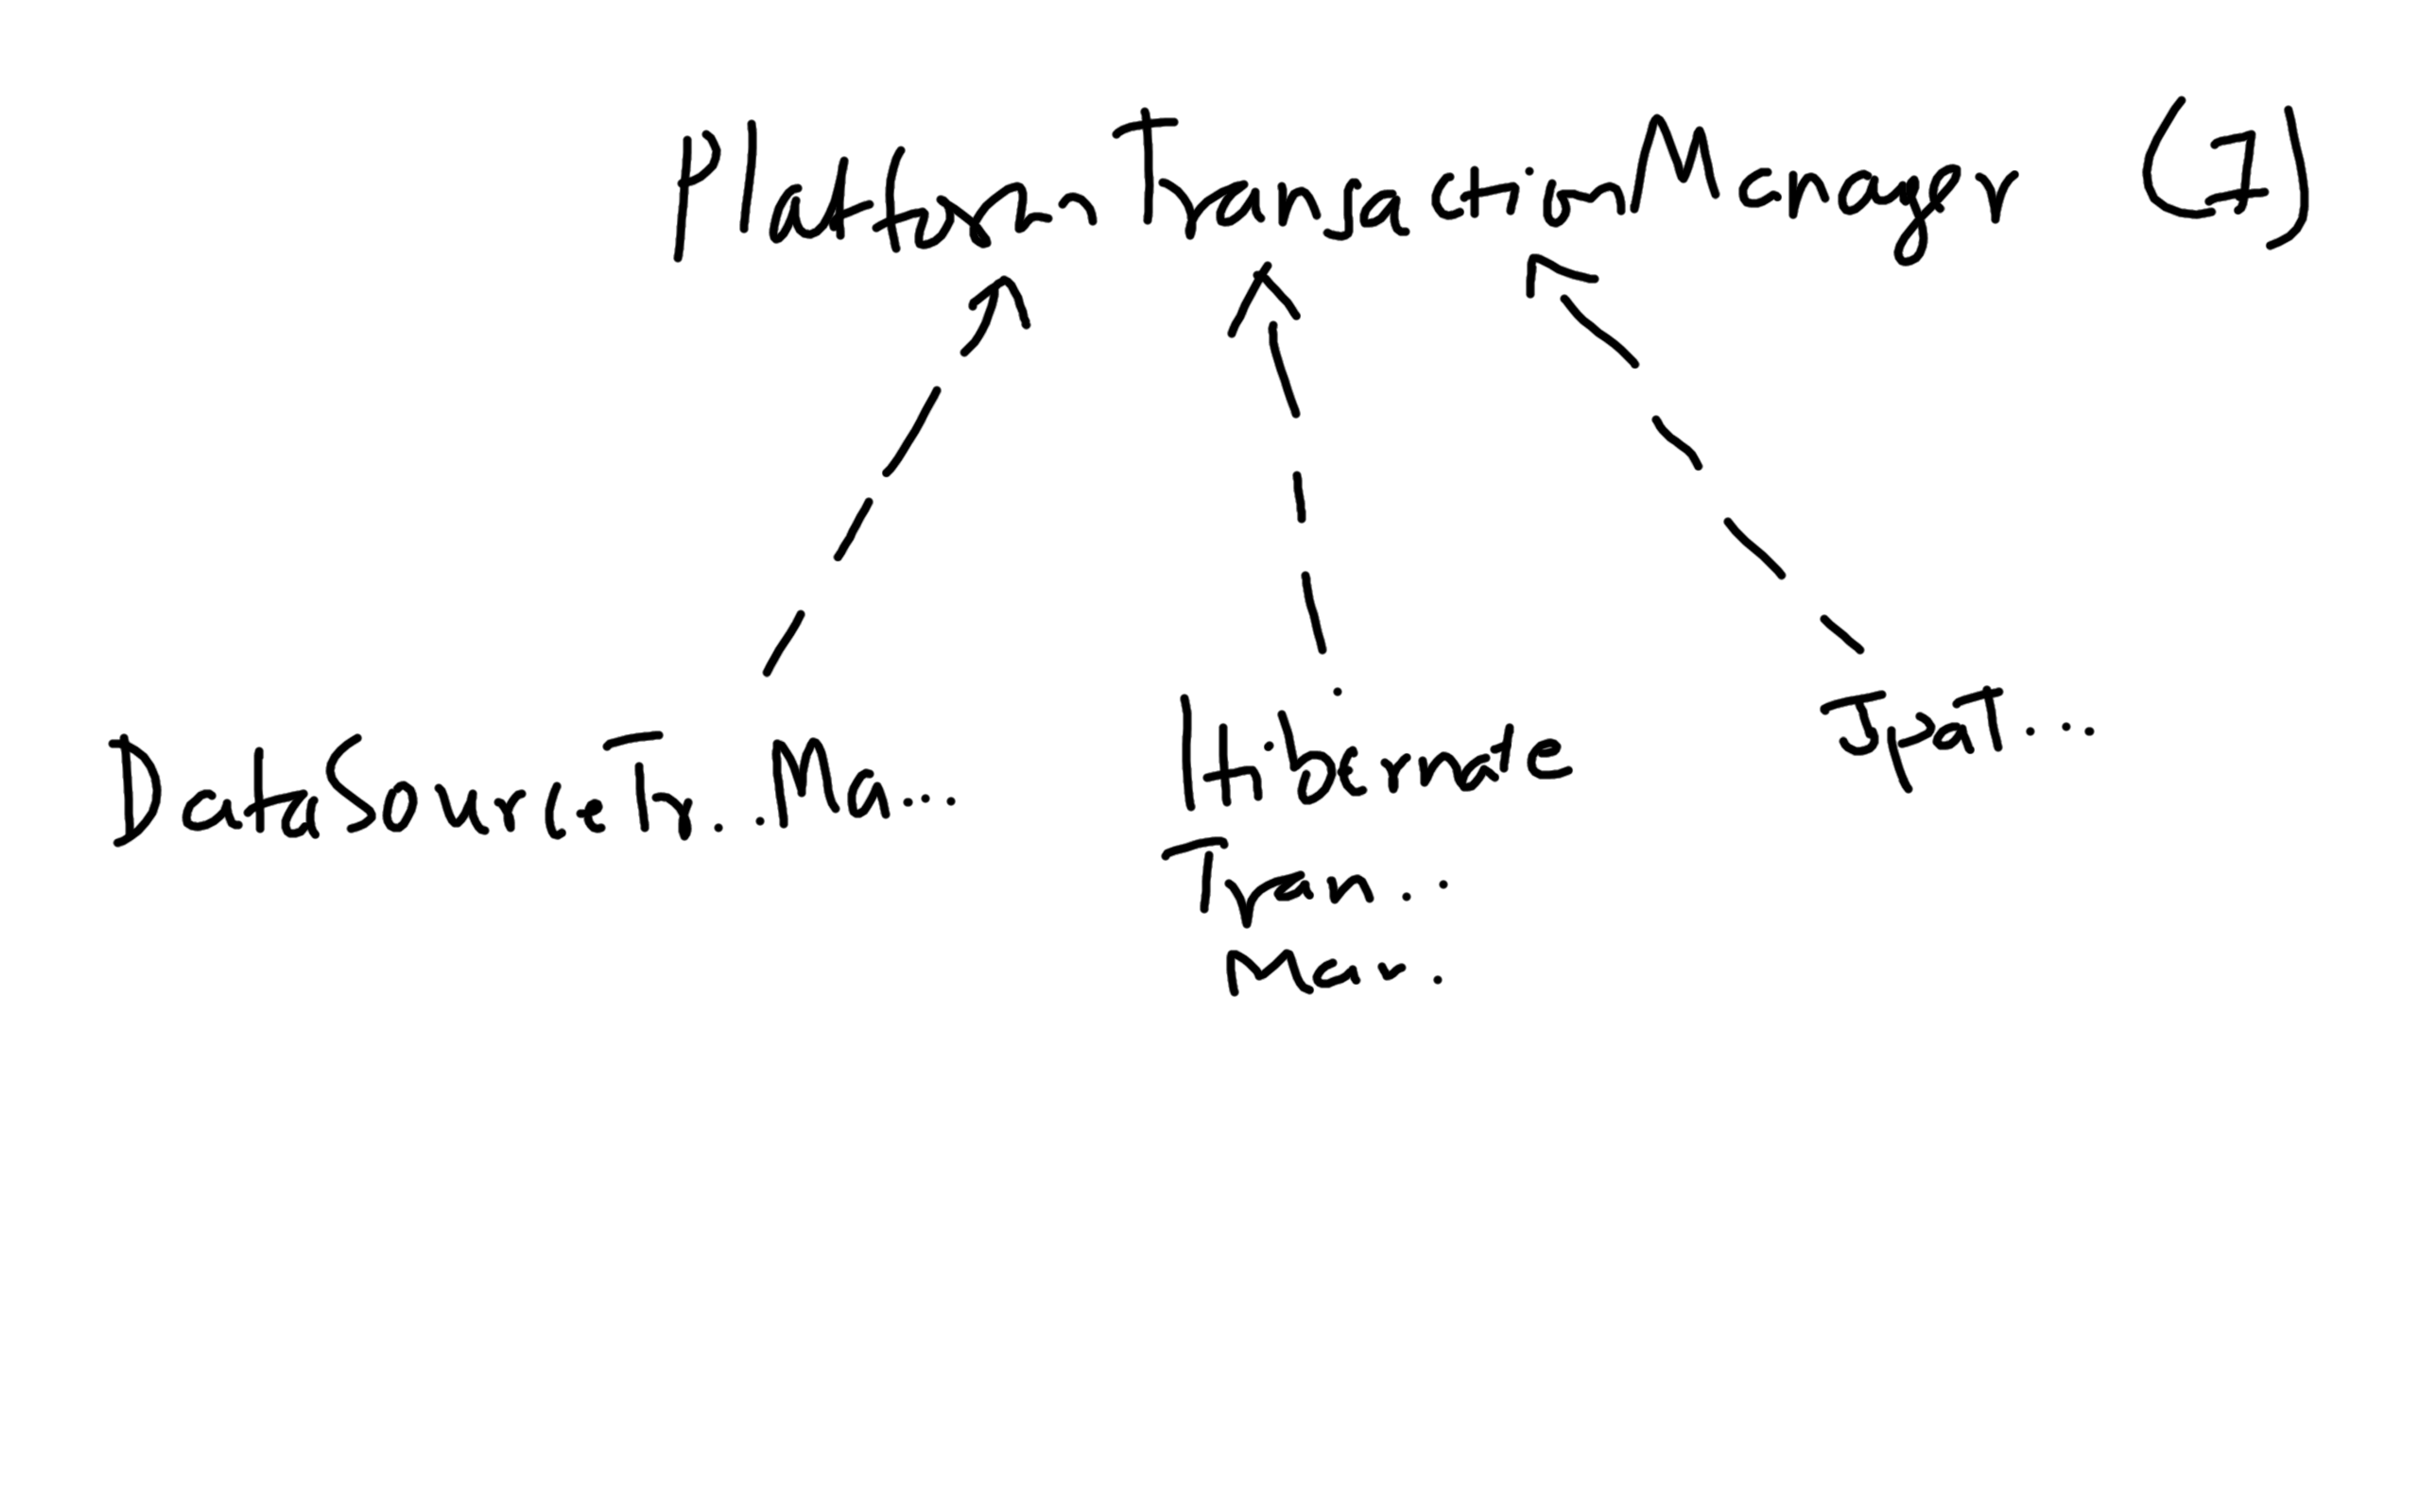 PlatformTransactionManager (I)
DataSourceTr...Ma...
Hibernate
Tran..
Man.
JpaT...